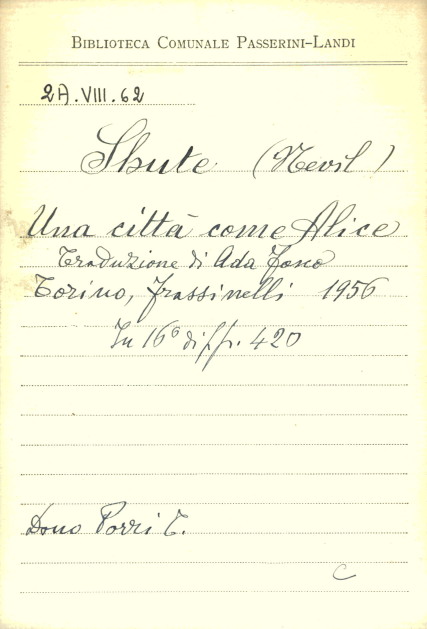 BIBLIOTECA COMUNALE PASSERINI-LANDI
2A.VIII.62
Shute (Nevil)
Una città come Alice
Traduzione di Ada
Torino, Frassinelli 1956
In 16° di pp. 420
Dono Porri T.
C